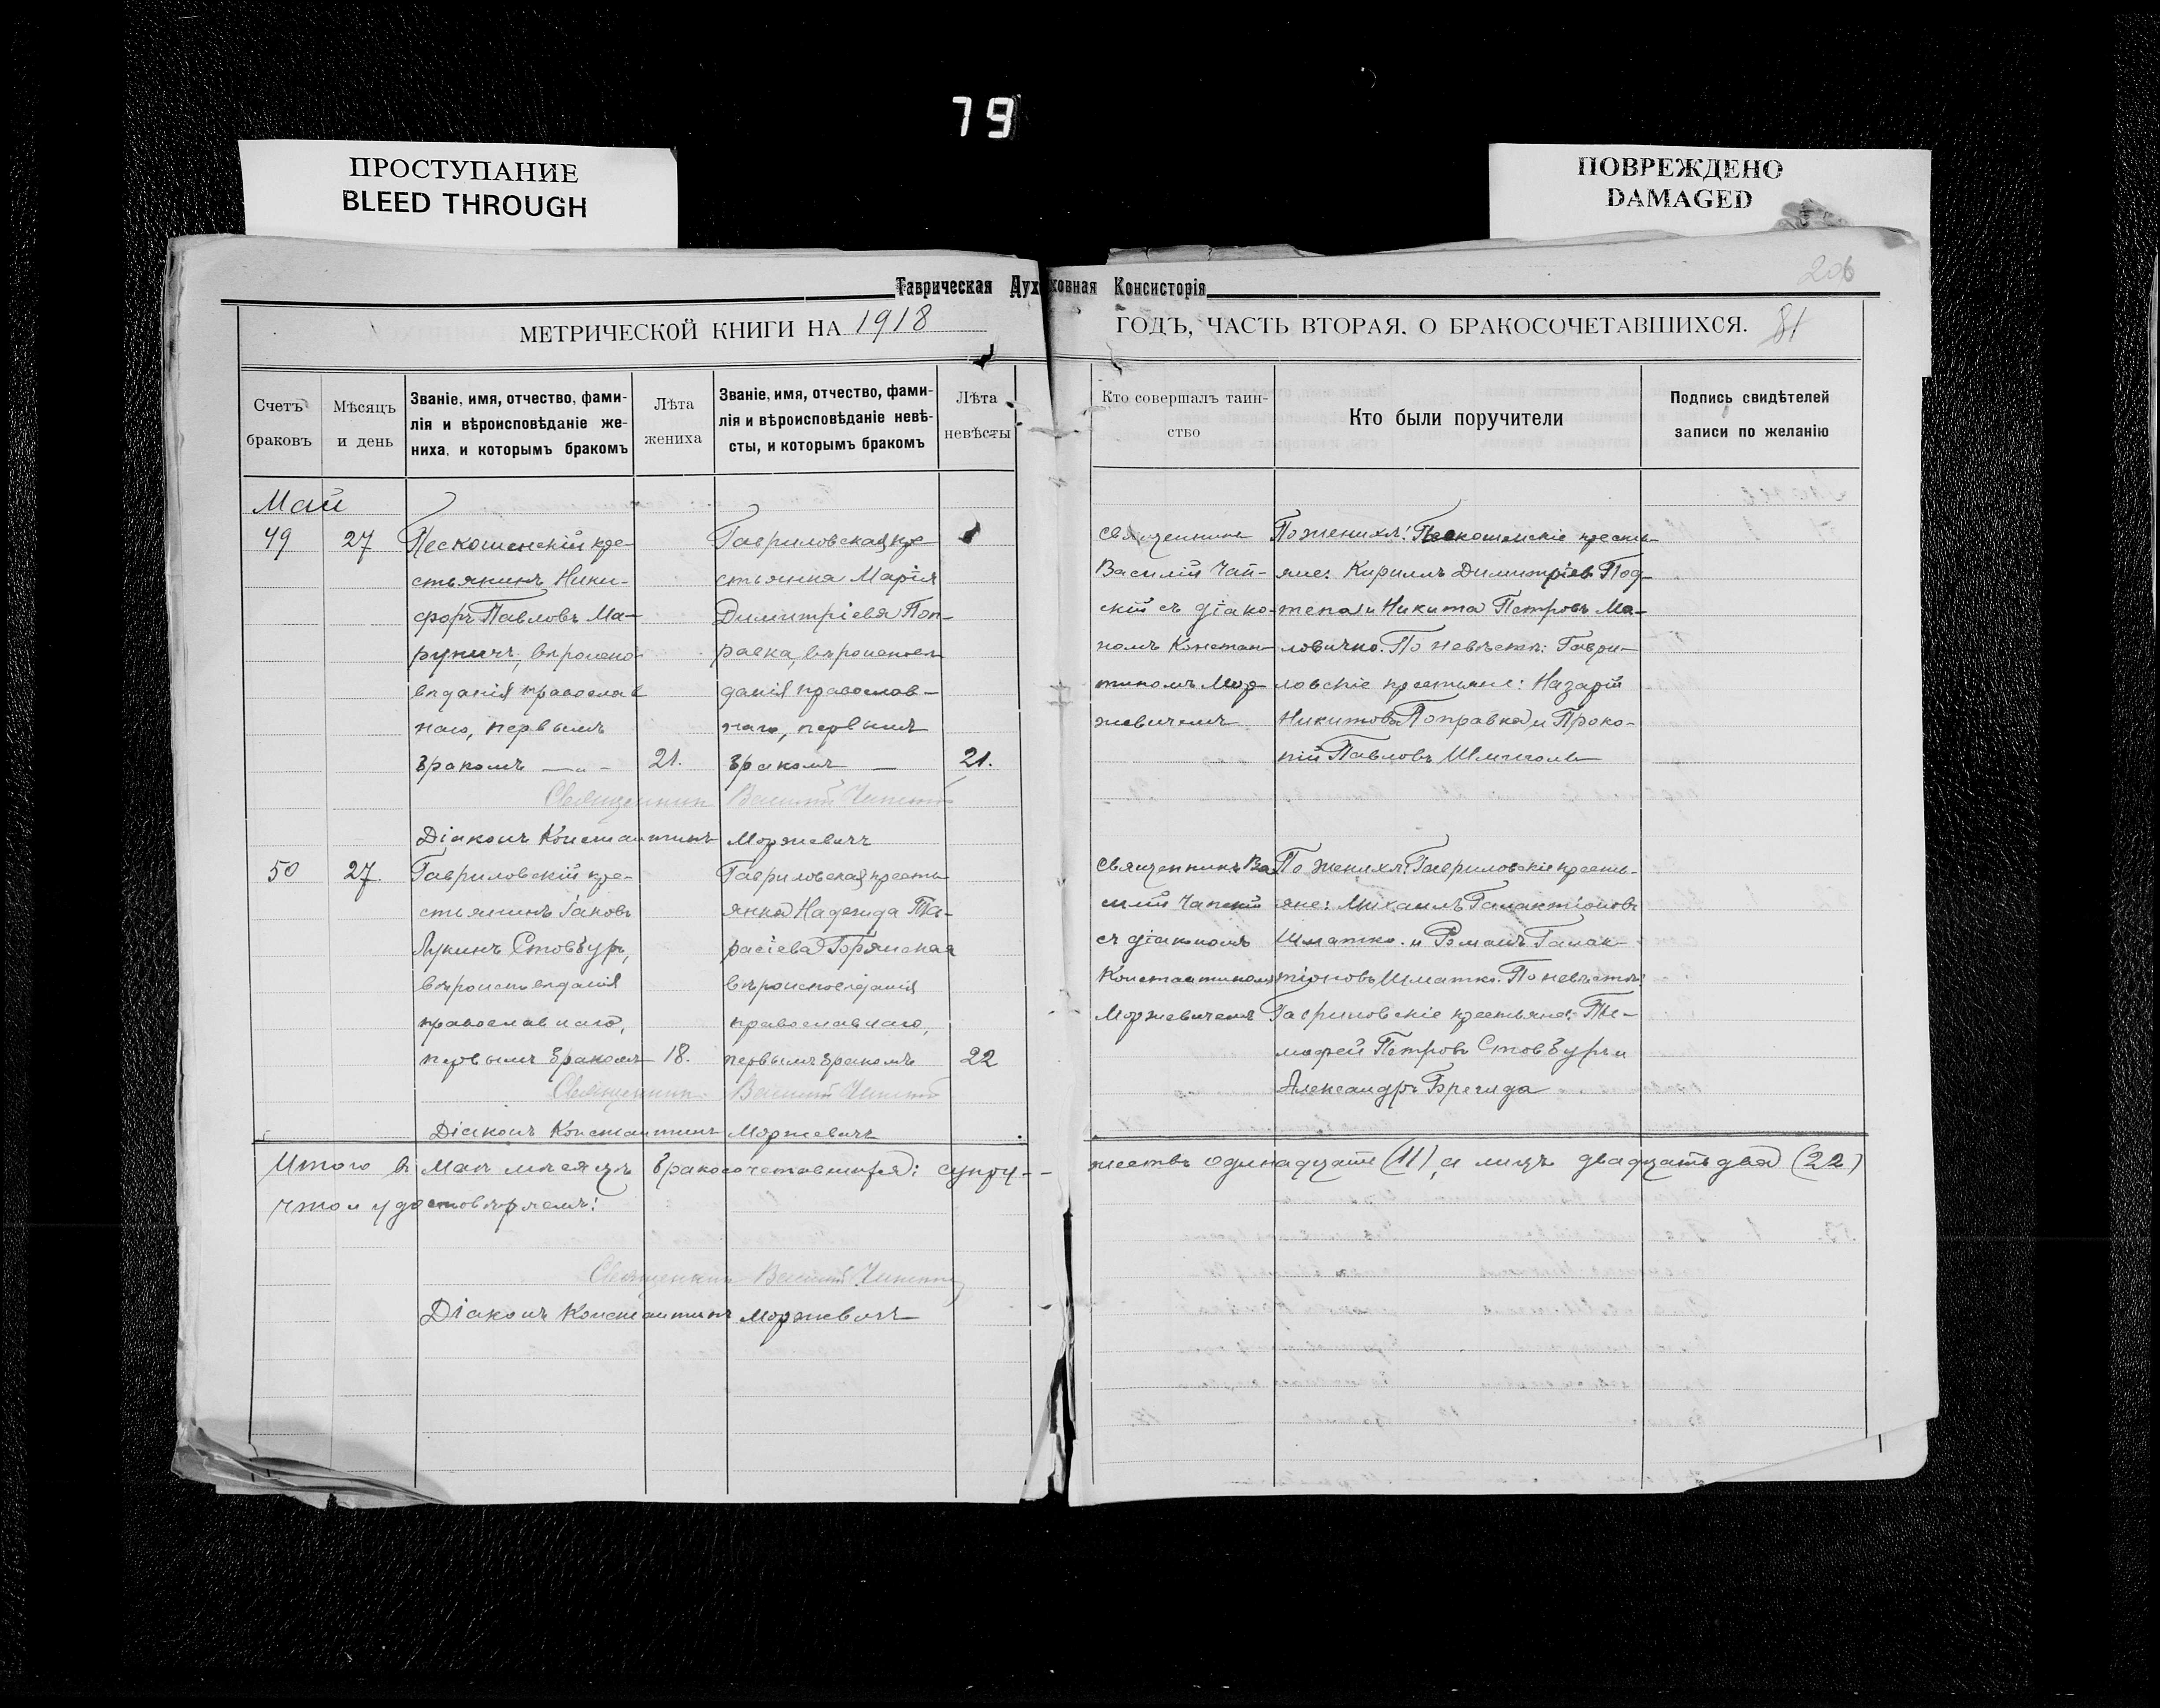 79
ПРОСТУПАНИЕ
BLEED THROUGH
ПОВРЕЖДЕНО
DAMAGED
206
Таврическая Духовная Консисторія
МЕТРИЧЕСКОЙ КНИГИ НА 1918 ГОДЪ, ЧАСТЬ ВТОРАЯ. О БРАКОСОЧЕТАВШИХСЯ. 81
Счетъ браковъ
Мѣсяцъ и день
Званіе, имя, отчество, фами-
лія и вѣроисповѣданіе же-
ниха, и которымъ бракомъ
Лѣта жениха
Званіе, имя, отчество, фами-
лія и вѣроисповѣданіе невѣ-
сты, и которымъ бракомъ
Лѣта невѣсты
Кто совершалъ таин-
ство
Кто были поручители
Подпись свидѣтелей
записи по желанію
Май
49
27
Пескошенскій кре-
стьянинъ Ники-
форъ Павловъ Ма-
вѣроиспо-
вѣданія православ
наго, первымъ
бракомъ
21.
Гавриловская кре
стьянка Марія
Димитріева Поп-
равка, вѣроисповѣ
данія православ-
наго, первымъ
бракомъ
21.
Священникъ
Василій Чап-
скій съ діако-
номъ Констан
тиномъ Мор
жевичемъ
По женихѣ: Пескошенскіе кресть
яне: Кириллъ Димитріев Под-
и Никита Петровъ Ма-
ловичко. По невѣстѣ: Гаври-
ловскіе крестьяне: Назарій
Никитовъ Поправка и Проко-
пій Павловъ
Священник Василий
Діаконъ Константинъ Моржевичъ
50
27.
Гавриловскій кре-
стьянинъ Іаковъ
Лукинъ Стовбуръ,
вѣроисповѣданія
православнаго,
первымъ бракомъ
18.
Гавриловская кресть
янка Надежда Та-
расіева Горянская
вѣроисповѣданія
православнаго,
первымъ бракомъ
22
Священникъ Ва
силій Чапскій
съ діакономъ
Константиномъ
Моржевичемъ
По женихѣ: Гавриловскіе кресть-
яне: Михаилъ Галактіоновъ
Шматко и Романъ Галак-
тіоновъ Шматко. По невѣстѣ:
Гавриловскіе крестьяне: Ти-
мофей Петровъ Стовбуръ и
Александръ
Священник Василий
Діаконъ Константинъ Моржевичъ
Итого в Маѣ мѣсяцѣ бракосочетавшихся: супру-жествъ одинадцать (11), а лицъ двадцать два (22)
что и удостовѣряемъ:
Священникъ Василий
Діаконъ Константинъ Моржевичъ